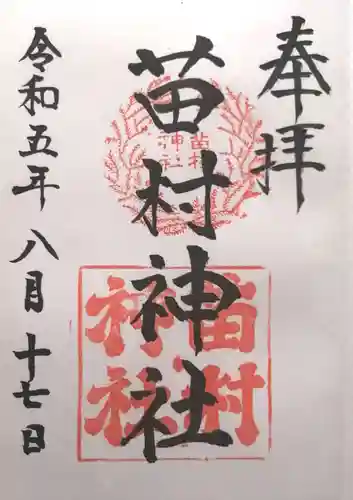 奉拝
苗村神社
令和五年八月十七日
苗村
神社
苗村
神社